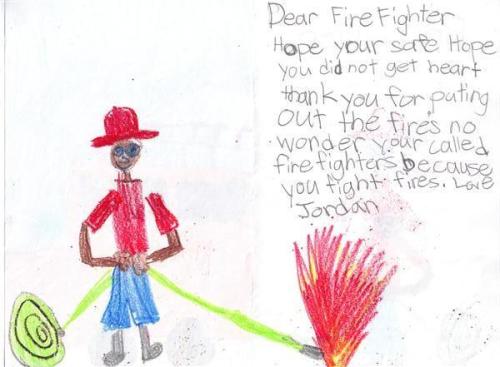 Dear Fire Fighter
Hope your safe Hope
you did not get heart
thank you for puting
out the fire's no
wonder your called
fire fighters because
you fight fires. Love
Jordan